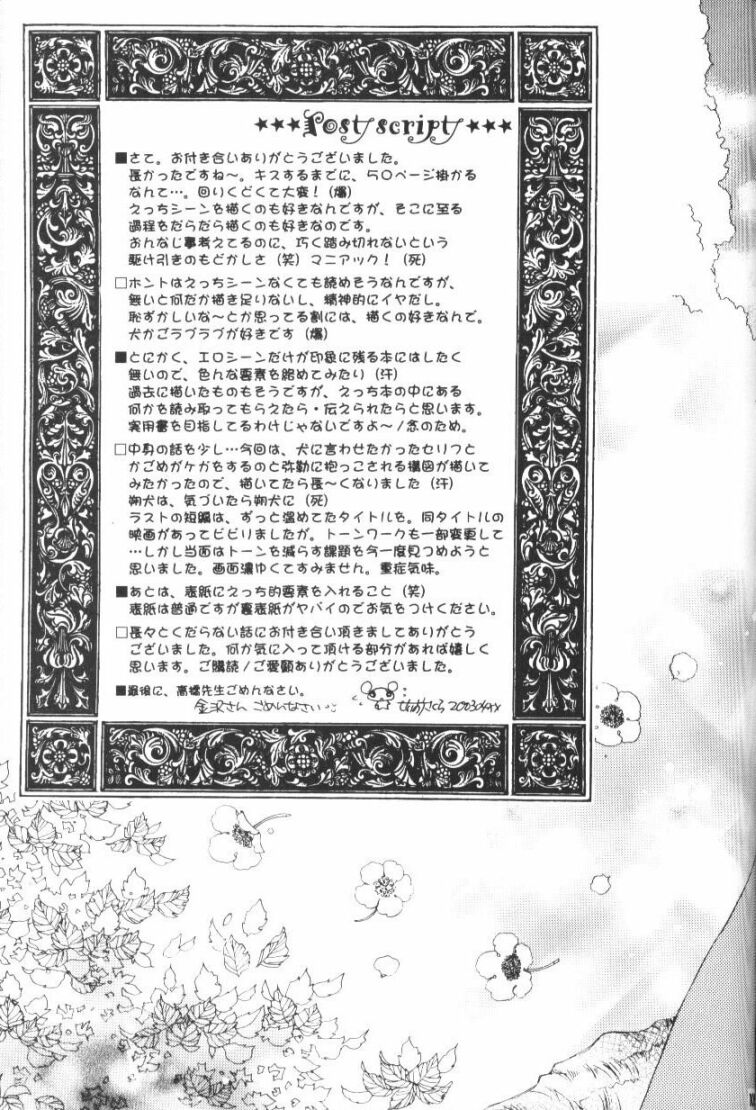 ★★★Post script★★★
■さて。お付き合いありがとうございました。
長かったですね〜。キスするまでに、50ページ掛かる
なんて…。回りくどくて大変！(爆)
えっちシーンを描くのも好きなんですが、そこに至る
過程をだらだら描くのも好きなのです。
おんなじ事考えてるのに、巧く踏み切れないという
駆け引きのもどかしさ（笑）マニアック！（死）
□ホントはえっちシーンなくても読めそうなんですが、
無いと何だか描き足りないし、精神的にイヤだし。
恥ずかしいな〜とか思ってる割には、描くの好きなんで。
犬かごラブラブが好きです（爆）
■とにかく、エロシーンだけが印象に残る本にはしたく
無いので、色んな要素を絡めてみたり（汗）
過去に描いたものもそうですが、えっち本の中にある
何かを読み取ってもらえたら・伝えられたらと思います。
実用書を目指してるわけじゃないですよ〜/念のため。
□中身の話を少し…今回は、犬に言わせたかったセリフと
かごめがケガをするのと弥勒に抱っこされる構図が描いて
みたかったので、描いてたら長〜くなりました（汗）
朔犬は、気づいたら朔犬に（死）
ラストの短編は、ずっと温めてたタイトルを。同タイトルの
映画があってビビりましたが。トーンワークも一部変更して
…しかし当面はトーンを減らす課題を今一度見つめようと
思いました。画面濃ゆくてすみません。重症気味。
■あとは、表紙にえっち的要素を入れること（笑）
表紙は普通ですが裏表紙がヤバイのでお気をつけください。
□長々とくだらない話にお付き合い頂きましてありがとう
ございました。何か気に入って頂ける部分があれば嬉しく
思います。ご購読/ご愛顧ありがとうございました。
■最後に、高橋先生ごめんなさい。
金沢さん ごめんなさい